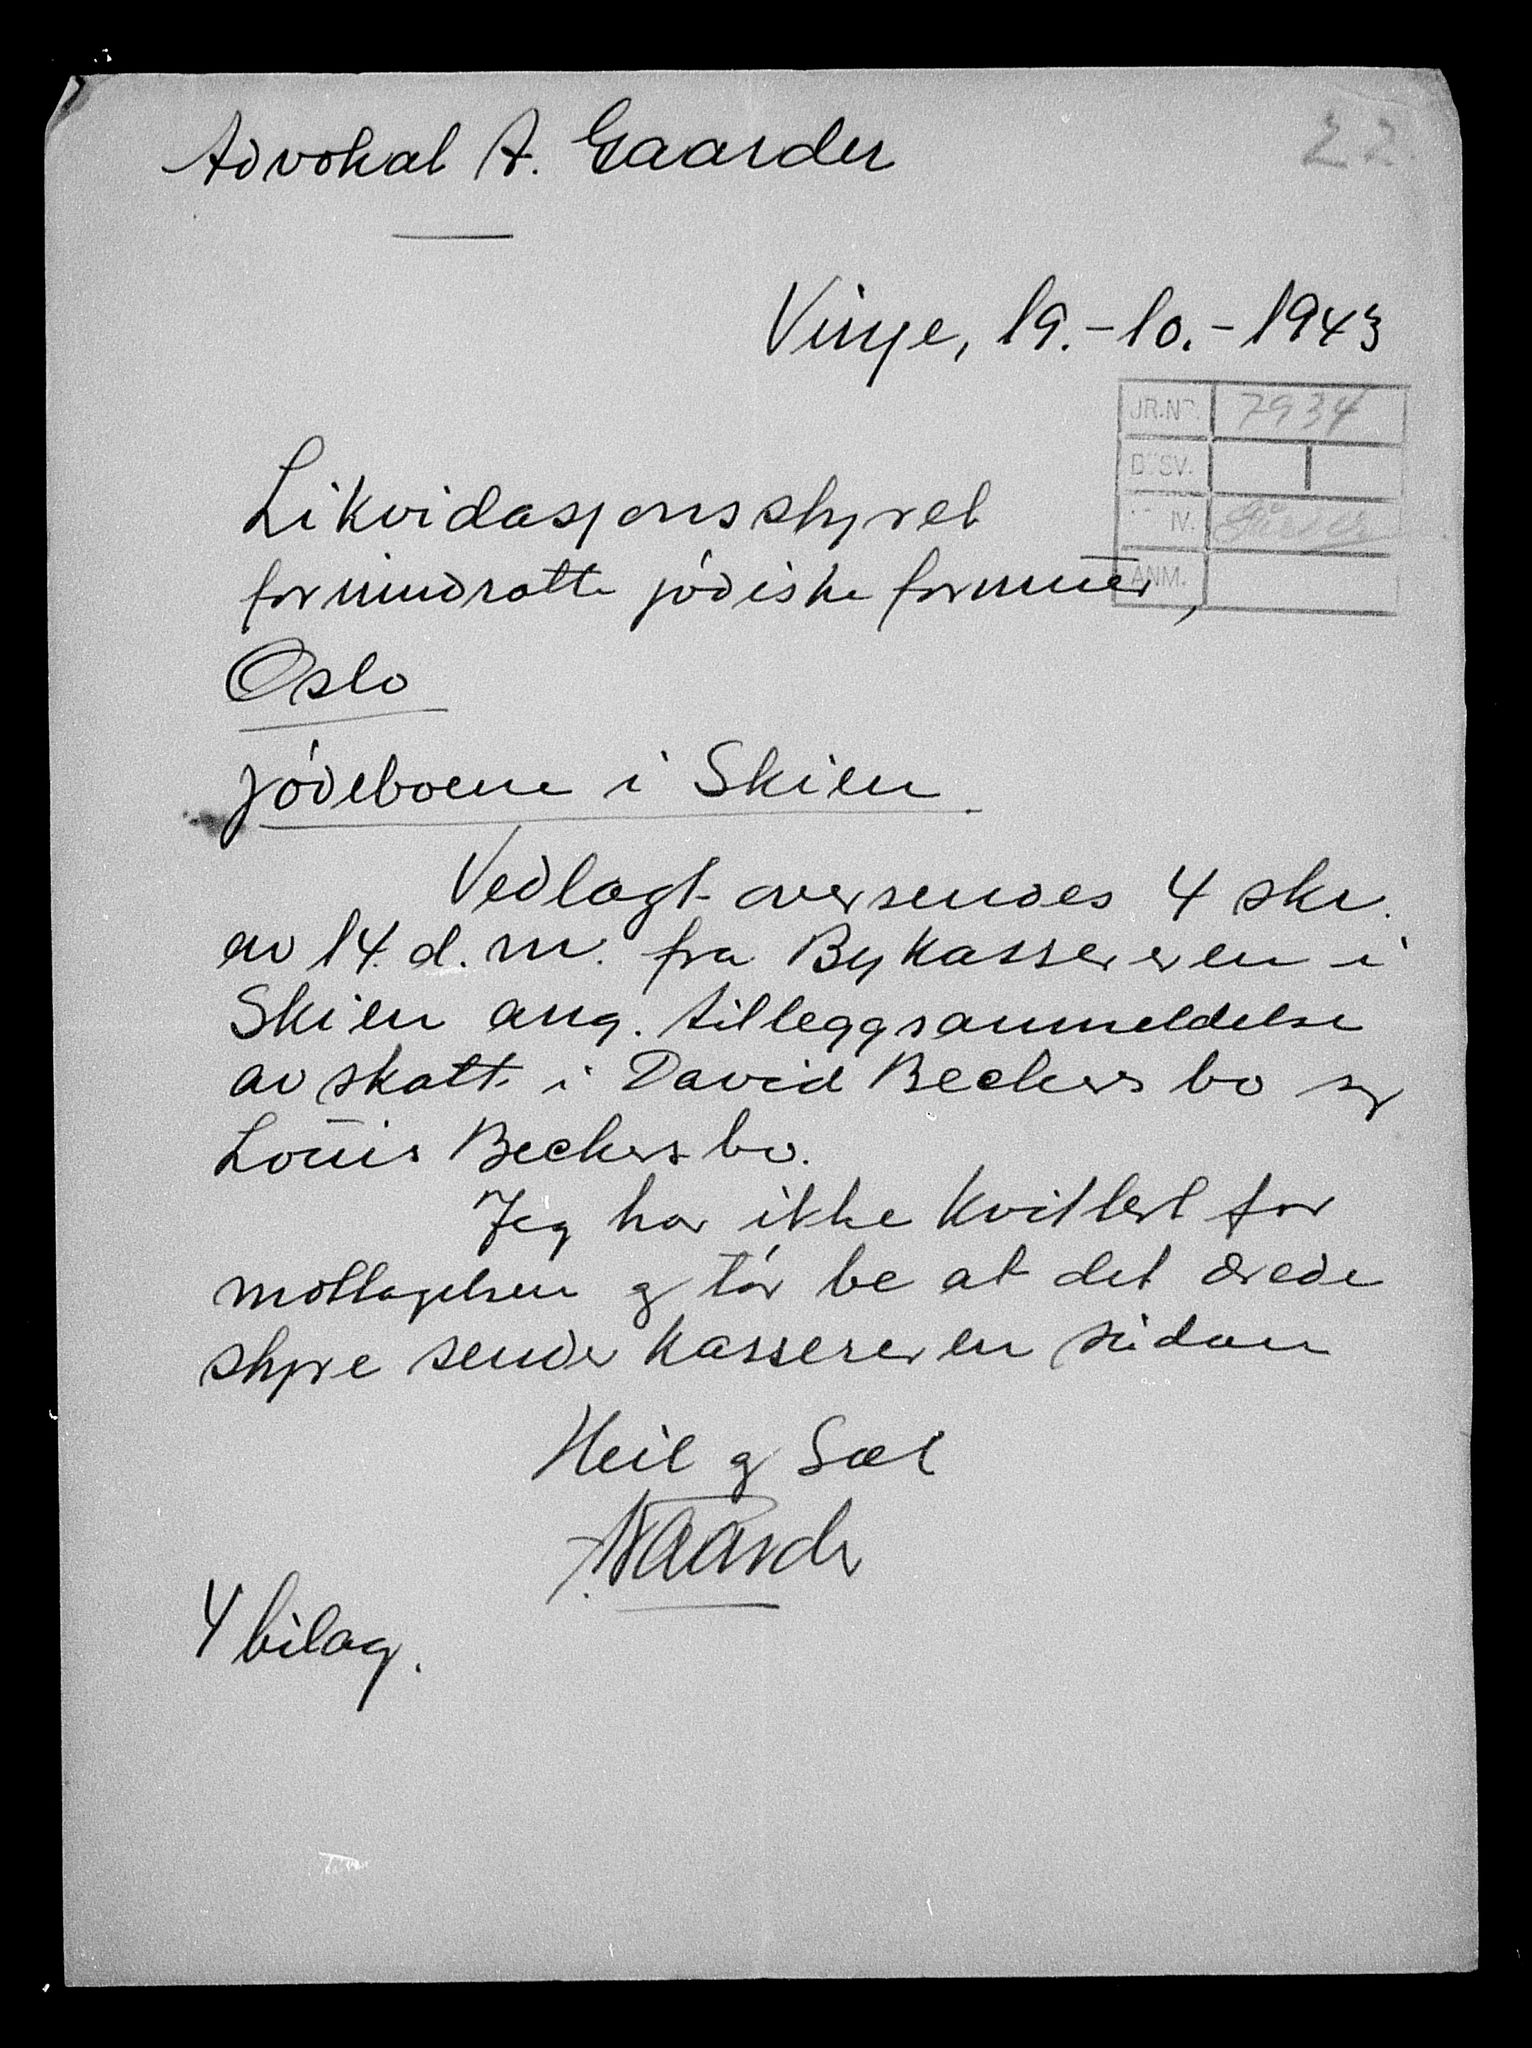 Advokat A. Gaarder
22
Vinje, 19.-10.-1943
JR.NR. 7934
ANM.
Likvidasjonsstyret
for inndratte jødiske formuer,
Oslo
Jødeboene i Skien.
Vedlagt oversendes 4 skr.
av 14. d.m. fra Bykassereren i
Skien ang. tilleggsanmeldelse
av skatt i David Beckers bo og
Louis Beckers bo.
Jeg har ikke kvittert for
mottagelsen og tör be at det ærede
styre sender kassereren sådan
Heil og Sæl
A. Gaarder
4 bilag.